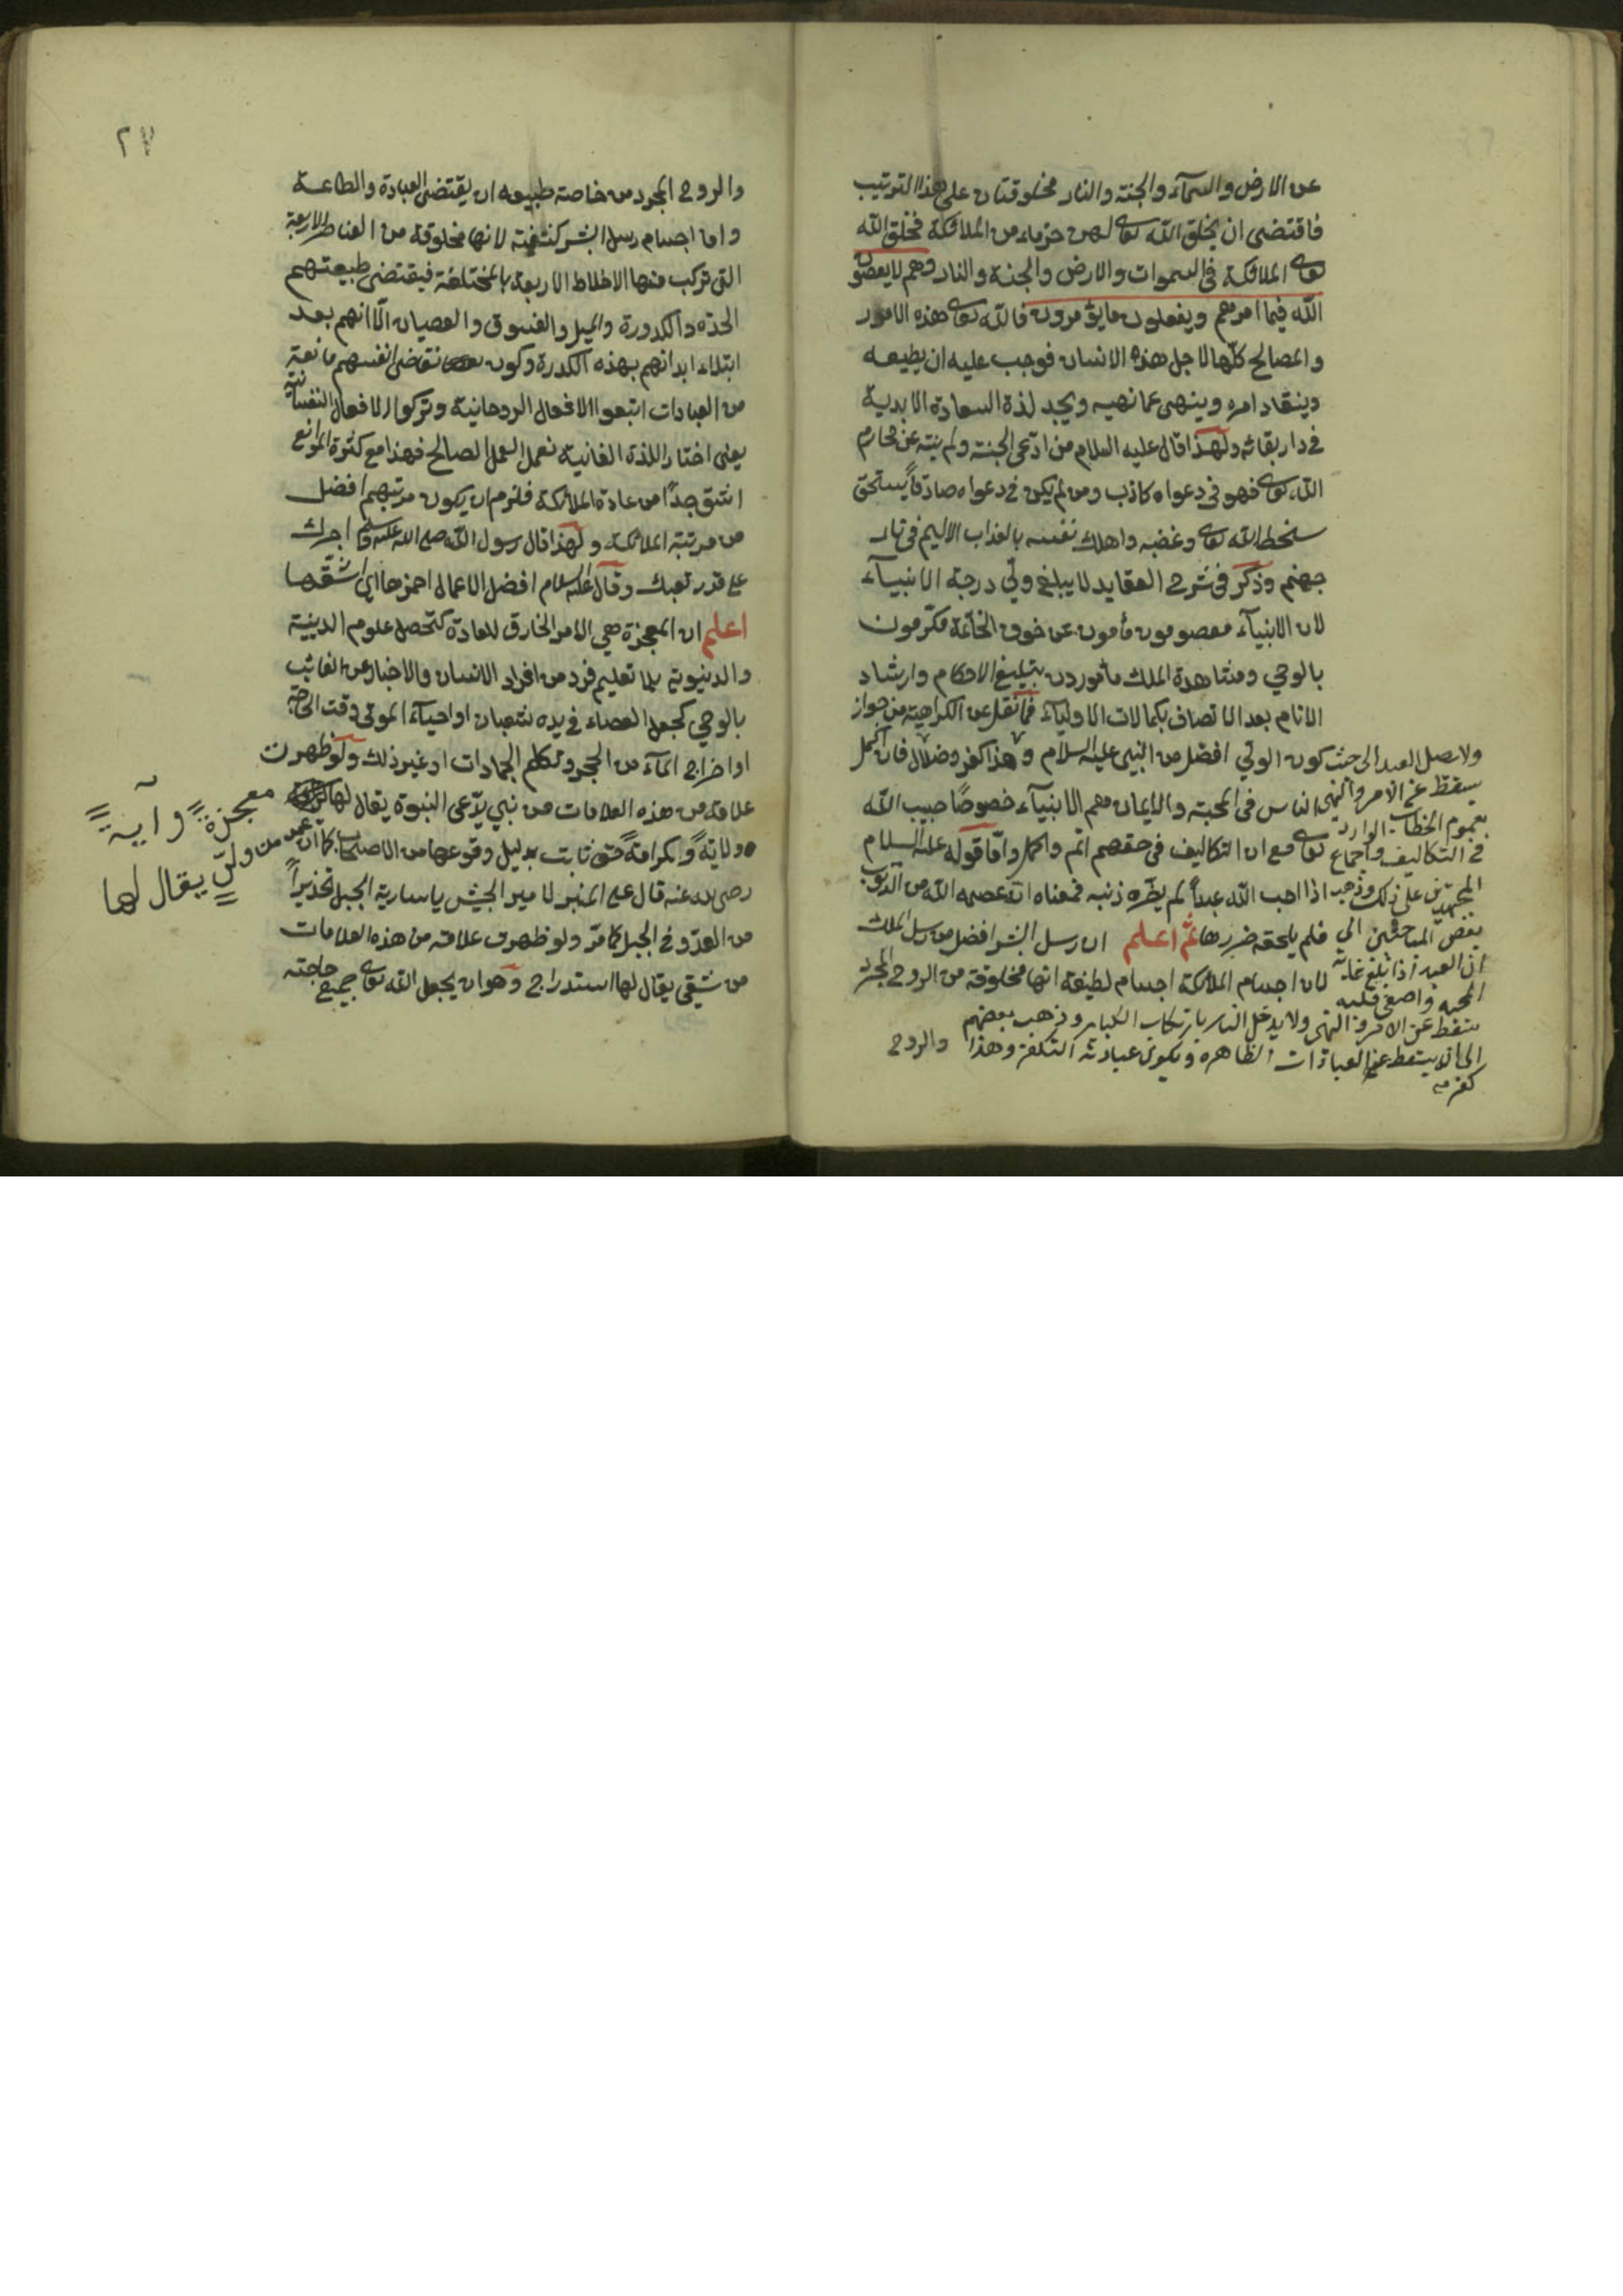 عن الارض والسمآء والجنة والنار مخلوقتان على هذا الترتيب
فاقتضى ان يخلق الله تعالى لهن خزماء من الملائكة فخلق الله
تعالى الملائكة فى السموات والارض والجنة والنار وهم لا يعصون
الله فيما امرهم ويفعلون ما يؤمرون فالله تعالى هذه الامور
والمصالح كلها لاجل هذه الانسان فوجب عليه ان يطيعه
وينقاد امره وينهى عما نهيه ويجد لذة السعادة الابدية
فى دار بقائه ولهذا قال عليه السلام من ادّعى الجنة ولم ينته عن محارم
الله تعالى فهو فى دعواه كاذب ومن لم يكن فى دعواه صادقاً يستحق
سخط الله تعالى وغضبه واهلك نفسه بالعذاب الاليم فى نار
جهنم وذكر فى شرح العقايد لا يبلغ ولي درجة الانبيآء
لان الانبيآء معصومون مأمون عن خوف الخاتمة مكرّمون
بالوحي ومشاهدة الملك مأمورون بتبليغ الاحكام وارشاد
الانام بعد الاتصاف بكمالات الاوليآء فما نقل عن الكراهية من جواز
كون الولي افضل من النبى عليه السلام وهذا كفر وضلال فان اكمل
الناس فى المحبة والايمان هم الانبيآء خصوصًا حبيب الله
تعالى مع ان التكاليف فى حقهم اتم واكمل وامّا قوله عليه السلام
اذا احب الله عبداً لم يضره ذنبه فمعناه انه عصمه الله من الذنوب
فلم يلحقه ضررها ثم اعلم ان رسل البشر افضل من رسل الملك
لان اجسام الملائكة اجسام لطيفة انها مخلوقة من الروح المجرد
والروح
ولا يصل العبد الى حيث
يسقط عنه الامر والنهى
بعموم الخطاب الوارد
فى التكاليف واجماع
المجتهدين على ذلك وذهب
بعض المباحثين الى
ان العبد اذا بلغ غاية
المحبه واصفى قلبه
سقط عنه الامر والنهى ولا يدخل النار بارتكاب الكباير وذهب بعضهم
الى انه يسقط عنه العبادات الظاهره ويكون عبادته التفكر وهذا
كفر
٢٧
والروح المجرد من خاصة طبيعه ان يقتضى العبادة والطاعة
واما اجسام رسل البشر كثيفة لانها مخلوقة من العناصر الاربعة
التى تركب منها الاخلاط الاربعة بالمختلفة فيقتضى طبيعتهم
الحدة والكدورة والميل والفسوق والعصيان الّا انهم بعد
ابتلاء ابدانهم بهذه الكدرة وكون نقاضى انفسهم مانعة
من العبادات اتبعوا الافعال الروحانية وتركوا الافعال النفسانية
يعنى اختار اللذة الفانية نعمل العمل الصالح فهذا مع كثرة الموانع
اشق جدًا من عادة الملائكة فلزم ان يكون مرتبهم افضل
من مرتبة الملائكة ولهذا قال رسول الله صلى الله عليه وسلم اجرك
على قدر تعبك وقال عليه السلام افضل الاعمال احمزها اي اشقها
اعلم ان المعجزة هي الامر الخارق للعادة كتحصل علوم الدينية
والدنيوية بلا تعليم فرد من افراد الانسان والاخبار عن الغائب
بالوحي كجعل العصاء فى يده شعبان او احيآء الموتى وقت الحاجة
او اخراج المآء من الحجر وتكلم الجمادات او غير ذلك ولو ظهرت
علامة من هذه العلامات من نبي يدّعى النبوة يقال لها
معجزة وآية
ولو من ولىّ يقال لها
ولاية وكرامة حق ثابت بدليل وقوعها من الاصحاب كما ان عمر
رضى الله عنه قال على المنبر لامير الجيش يا سارية الجبل تحذيراً
من العدوّ فى الجبل كما مرّ ولو ظهرت علامة من هذه العلامات
من شقي يقال لها استدراج وهو ان يجعل الله تعالى جميع حاجته